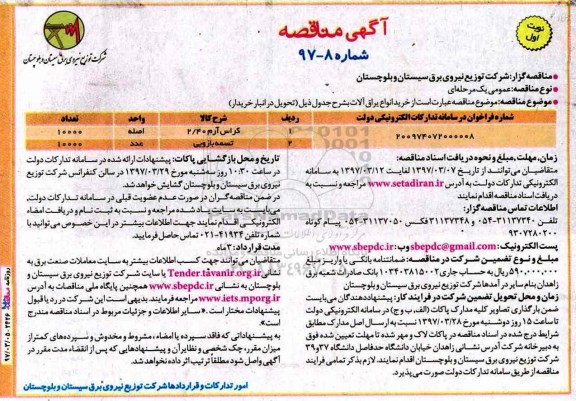 آگهی مناقصه
شماره ۸-۹۷
نوبت اول
شرکت توزیع نیروی برق سیستان و بلوچستان
مناقصه گزار: شرکت توزیع نیروی برق سیستان و بلوچستان
نوع مناقصه: عمومی یک مرحله‌ای
موضوع مناقصه: موضوع مناقصه عبارت است از خرید انواع یراق آلات بشرح جدول ذیل (تحویل در انبار خریدار)
شماره فراخوان در سامانه تدارکات الکترونیکی دولت ردیف شرح کالا واحد تعداد
۲۰۰۹۷۴۰۷۲۰۰۰۰۰۸
۱ کراس آرم ۲/۴۰ اصله ۱۰۰۰۰
۲ تسمه بازویی عدد ۱۰۰۰۰
زمان، مهلت، مبلغ و نحوه دریافت اسناد مناقصه:
متقاضیان می‌توانند از تاریخ ۱۳۹۷/۰۳/۰۷ لغایت ۱۳۹۷/۰۳/۱۲ به سامانه
الکترونیکی تدارکات دولت به آدرس www.setadiran.ir مراجعه و نسبت به
دریافت اسناد مناقصه اقدام نمایند
اطلاعات تماس مناقصه گزار:
تلفن ۳۱۱۳۷۲۴۰-۰۵۴ و ۳۱۱۳۷۳۴۸ فکس ۳۱۱۳۷۰۵۰-۰۵۴ پیام کوتاه
۹۳۰۷۲۸۰۲۰۰
پست الکترونیک: sbepdc@gmail.com وب: www.sbepdc.ir
مبلغ و نوع تضمین شرکت در مناقصه: ضمانتنامه بانکی یا واریز مبلغ
۵۹۰,۰۰۰,۰۰۰ ریال به حساب جاری ۱۰۳۴۰۳۸۱۵۰۰۲ بانک صادرات شعبه برق
زاهدان بنام سایر درآمدها شرکت توزیع نیروی برق سیستان و بلوچستان
زمان و محل تحویل تضمین شرکت در فرایند کار: پیشنهاددهندگان می‌بایست
ضمن بارگذاری تصاویر کلیه مدارک پاکات (الف، ب و ج) در سامانه الکترونیکی دولت
تا ساعت ۱۵ روز دوشنبه مورخ ۱۳۹۷/۰۳/۲۸ نسبت به ارسال اصل مدارک مطابق
شرایط درج شده در اسناد مناقصه در پاکات لاک و مهر شده تا مهلت تعیین شده فوق
به دبیرخانه شرکت آدرس نشانی زاهدان خیابان دانشگاه حدفاصل دانشگاه ۳۷ و ۳۹
شرکت توزیع نیروی برق سیستان و بلوچستان اقدام نمایند. لازم بذکر تمامی فرایند
مناقصه از طریق سامانه تدارکات دولت صورت می‌پذیرد.
تاریخ و محل بازگشایی پاکات: پیشنهادات ارائه شده در سامانه تدارکات دولت
در ساعت ۱۰:۳۰ روز سه‌شنبه مورخ ۱۳۹۷/۰۳/۲۹ در سالن کنفرانس شرکت توزیع
نیروی برق سیستان و بلوچستان گشایش خواهد شد.
در ضمن مناقصه گران در صورت عدم عضویت قبلی در سامانه تدارکات دولت،
می‌بایست به سایت یاد شده مراجعه و نسبت به ثبت نام و دریافت امضاء
الکترونیکی اقدام نمایند جهت اطلاعات بیشتر در این خصوص می‌توانید با
شماره تلفن ۴۱۹۳۴-۰۲۱ تماس حاصل فرمایید.
مدت قرارداد: ۳ ماه
متقاضیان می‌توانند جهت کسب اطلاعات بیشتر به سایت معاملات صنعت برق به
نشانی Tender.tavanir.org.ir یا سایت شرکت توزیع نیروی برق سیستان و
بلوچستان به نشانی www.sbepdc.ir همچنین پایگاه ملی مناقصات به آدرس
www.iets.mporg.ir مراجعه فرمایند. بدیهی است این شرکت در رد یا قبول
پیشنهادات مختار است. « سایر اطلاعات و جزئیات مربوط در اسناد مناقصه مندرج
است».
به پیشنهاداتی که فاقد سپرده یا امضاء، مشروط و مخدوش و سپرده‌های کمتر از
میزان مقرر، چک شخصی و نظایر آن و پیشنهادهایی که پس از انقضاء مدت مقرر در
آگهی واصل شود مطلقاً ترتیب اثر داده نخواهد شد.
امور تدارکات و قراردادها شرکت توزیع نیروی برق سیستان و بلوچستان